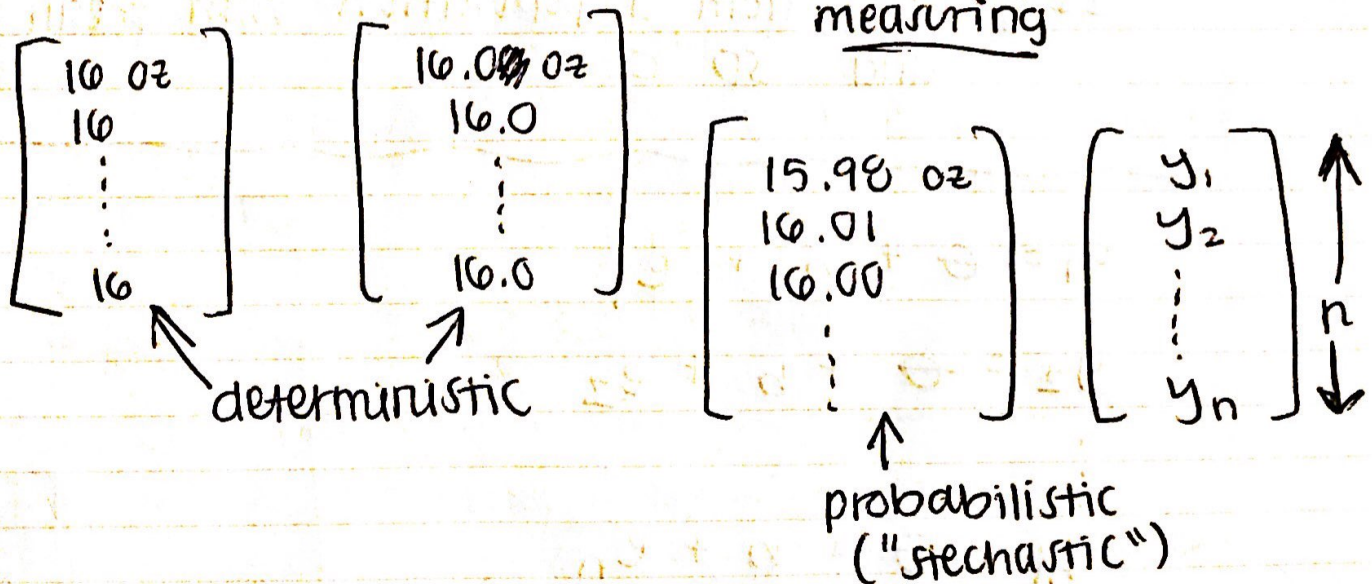 measuring
16 oz
16
16
16.0 oz
16.0
16.0
deterministic
15.98 oz
16.01
16.00
probabilistic
("stechastic")
y₁
y₂
yₙ
n